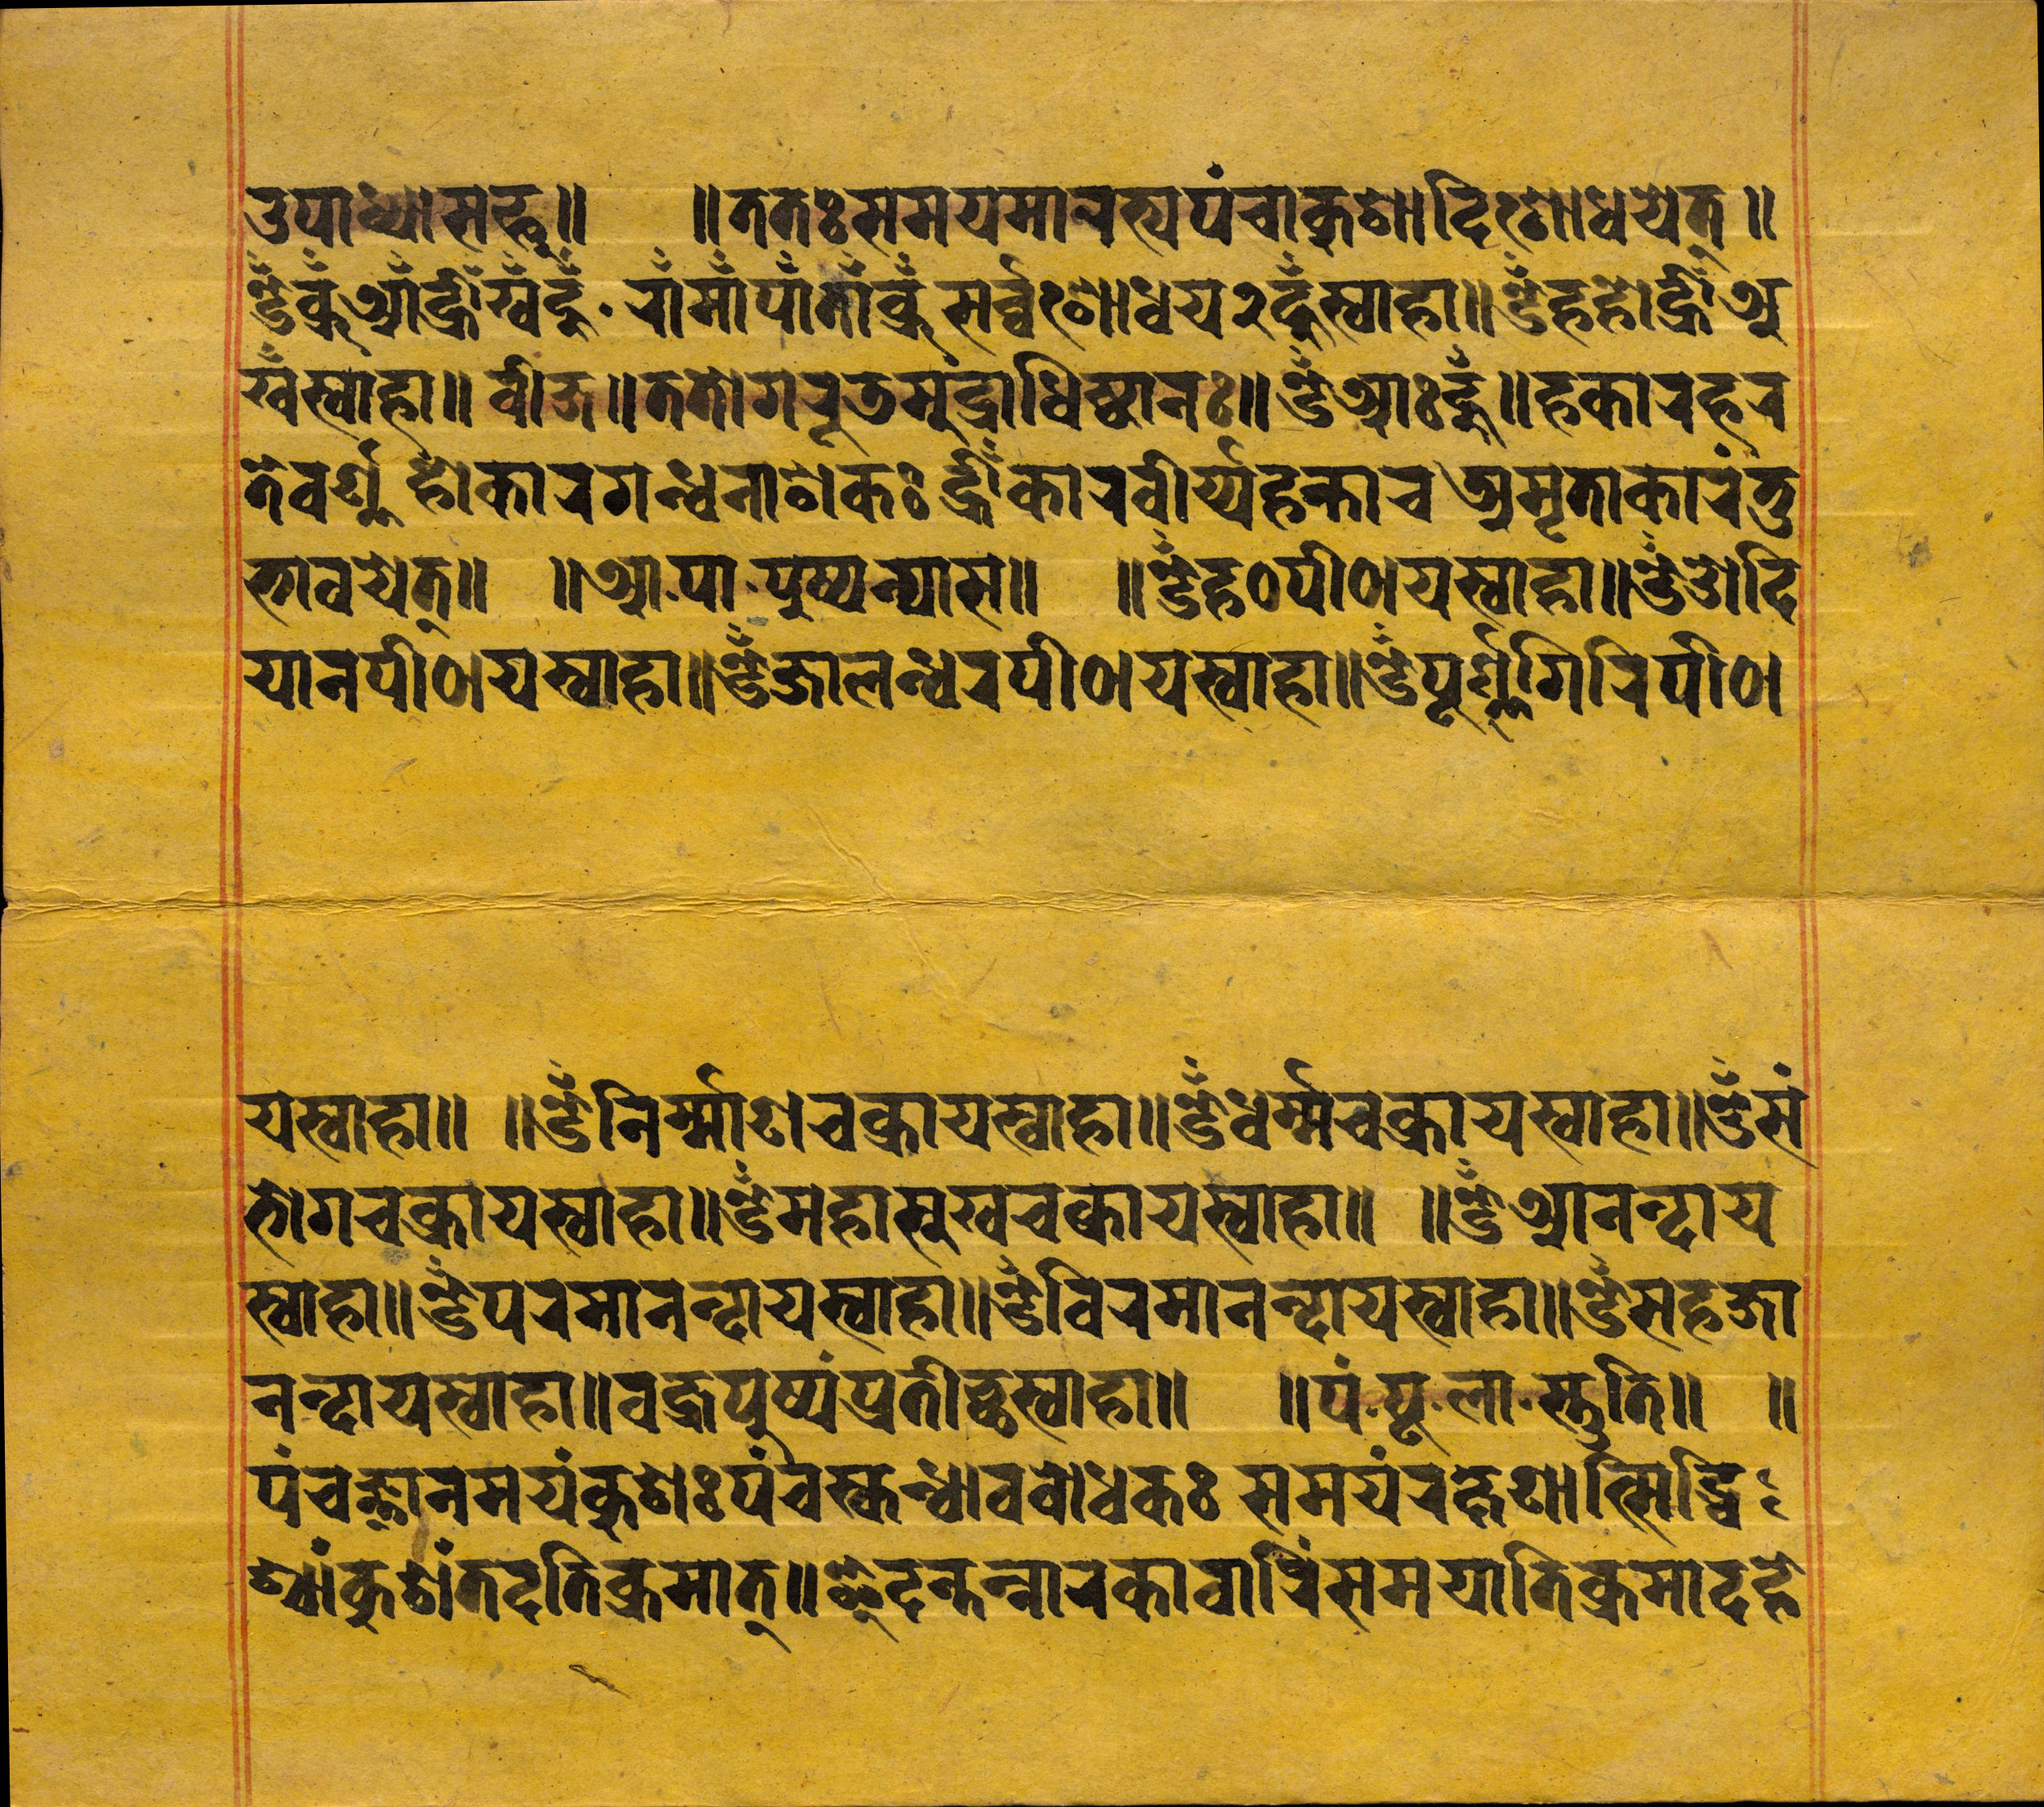 उपाध्यासह्नू॥ ॥ततःसमयमानस्यपंचाकुशादिःशोधयेत्॥
ॐव्रूँआँह्रीँखँहूँ·राँमाँपाँताँव्रूँसर्व्वःशोधय२हूँस्वाहा॥ॐहहोह्रीँअ
खँस्वाहा॥वीज॥ततोगरूडमुंद्राधिष्ठानः॥ॐआःहूँ॥हकारहर
तेवर्ण्णहोकारगन्धनाशकःह्रीँकारवीर्य्यहन्ताचअमृताकारंतु
भावयेत्॥ ॥आ·पा·पुष्पन्यास॥ ॥ॐह०पीठायस्वाहा॥ॐओदि
यानपीठायस्वाहा॥ॐजालन्धरपीठायस्वाहा॥ॐपूर्ण्णगिरिपीठा
यस्वाहा॥ ॥ॐनिर्म्माणचक्रायस्वाहा॥ॐधर्म्मचक्रायस्वाहा॥ॐसं
भोगचक्रायस्वाहा॥ॐमहासुखचक्रायस्वाहा॥ ॥ॐआनन्दाय
स्वाहा॥ॐपरमानन्दायस्वाहा॥ॐविरमानन्दायस्वाहा॥ॐसहजा
नन्दायस्वाहा॥वज्रपुष्पंप्रतीच्छस्वाहा॥ ॥पं·पू·ला·स्तुति॥ ॥
पंचज्ञानमयंकुशःपंचस्कन्धावबोधकः समयंरक्षणात्सिद्धि
श्यांकुशंतदतिक्रमात्॥छेदन्तन्नारकावारिंसमयातिक्रमादहे